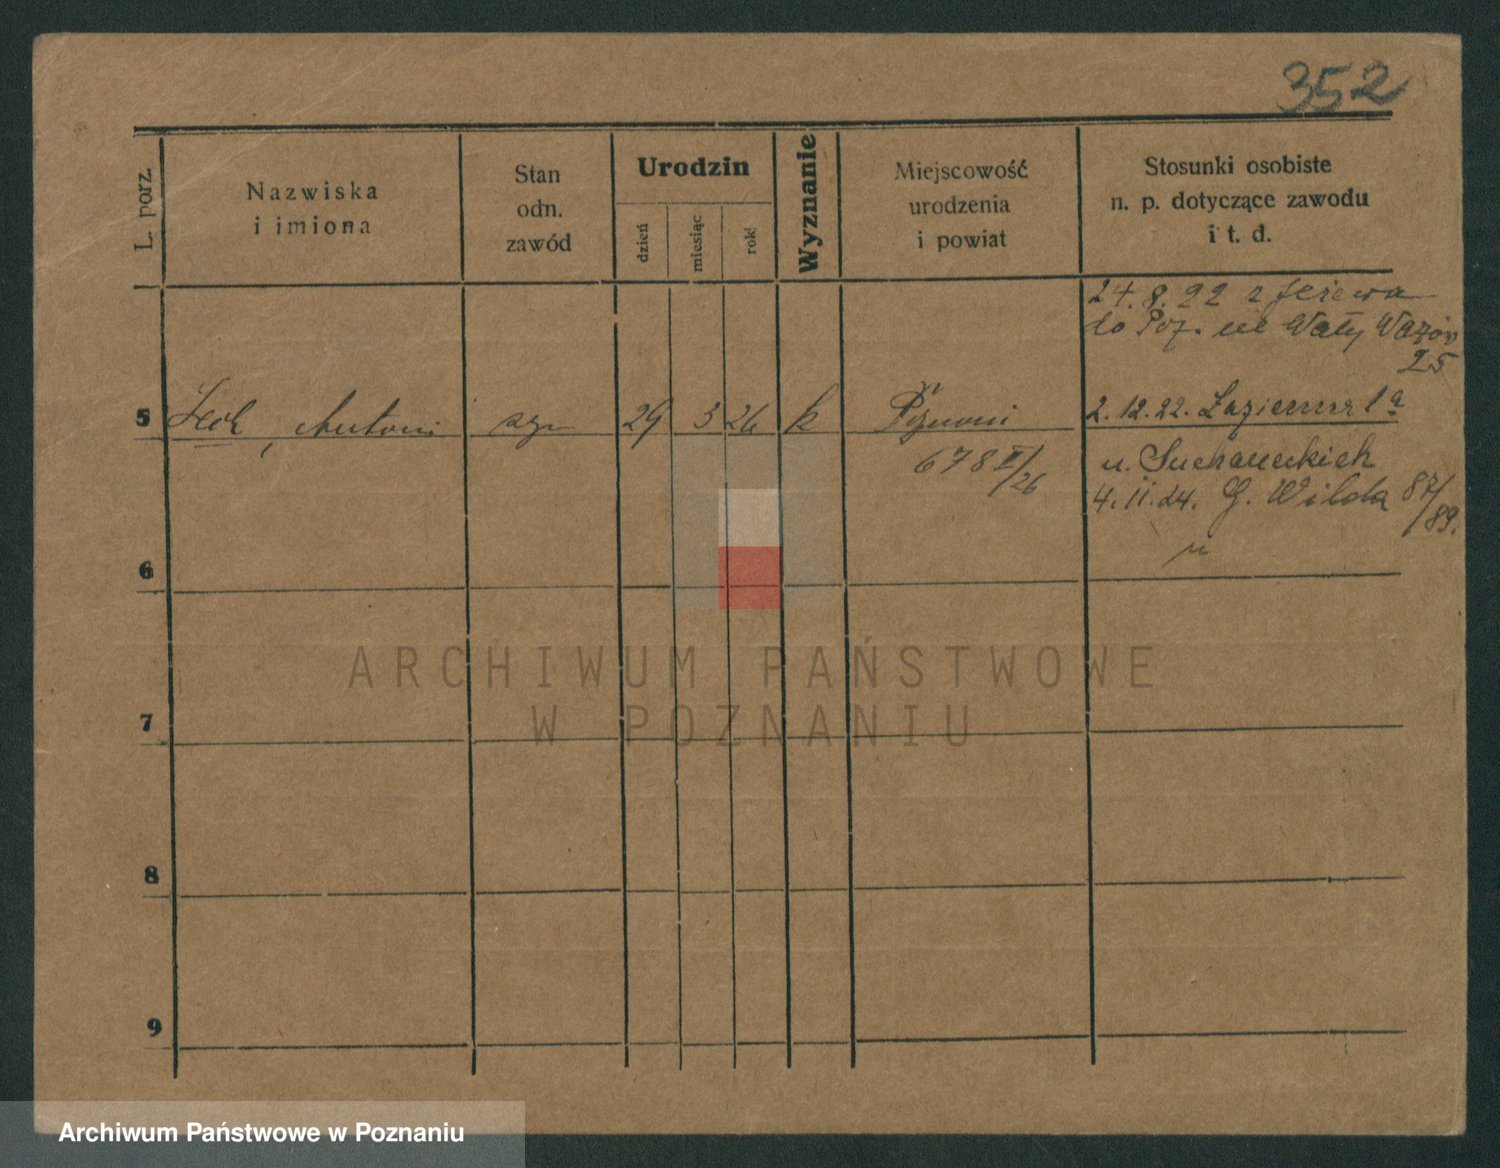 352
L. porz.
Nazwiska
i imiona
Stan
odn.
zawód
Urodzin
dzień
miesiąc
rok
Wyznanie
Miejscowość
urodzenia
i powiat
Stosunki osobiste
n. p. dotyczące zawodu
i t. d.
24.8.22 z Jeżewa
do Poz. na Wały Wazów
25
5 Antoni 29 3 26 k
2.12.22. 1a
678 II/26
u.
4.11.24. G. Wilda 87/89.
6
7
8
9
ARCHIWUM PAŃSTWOWE
W POZNANIU
Archiwum Państwowe w Poznaniu